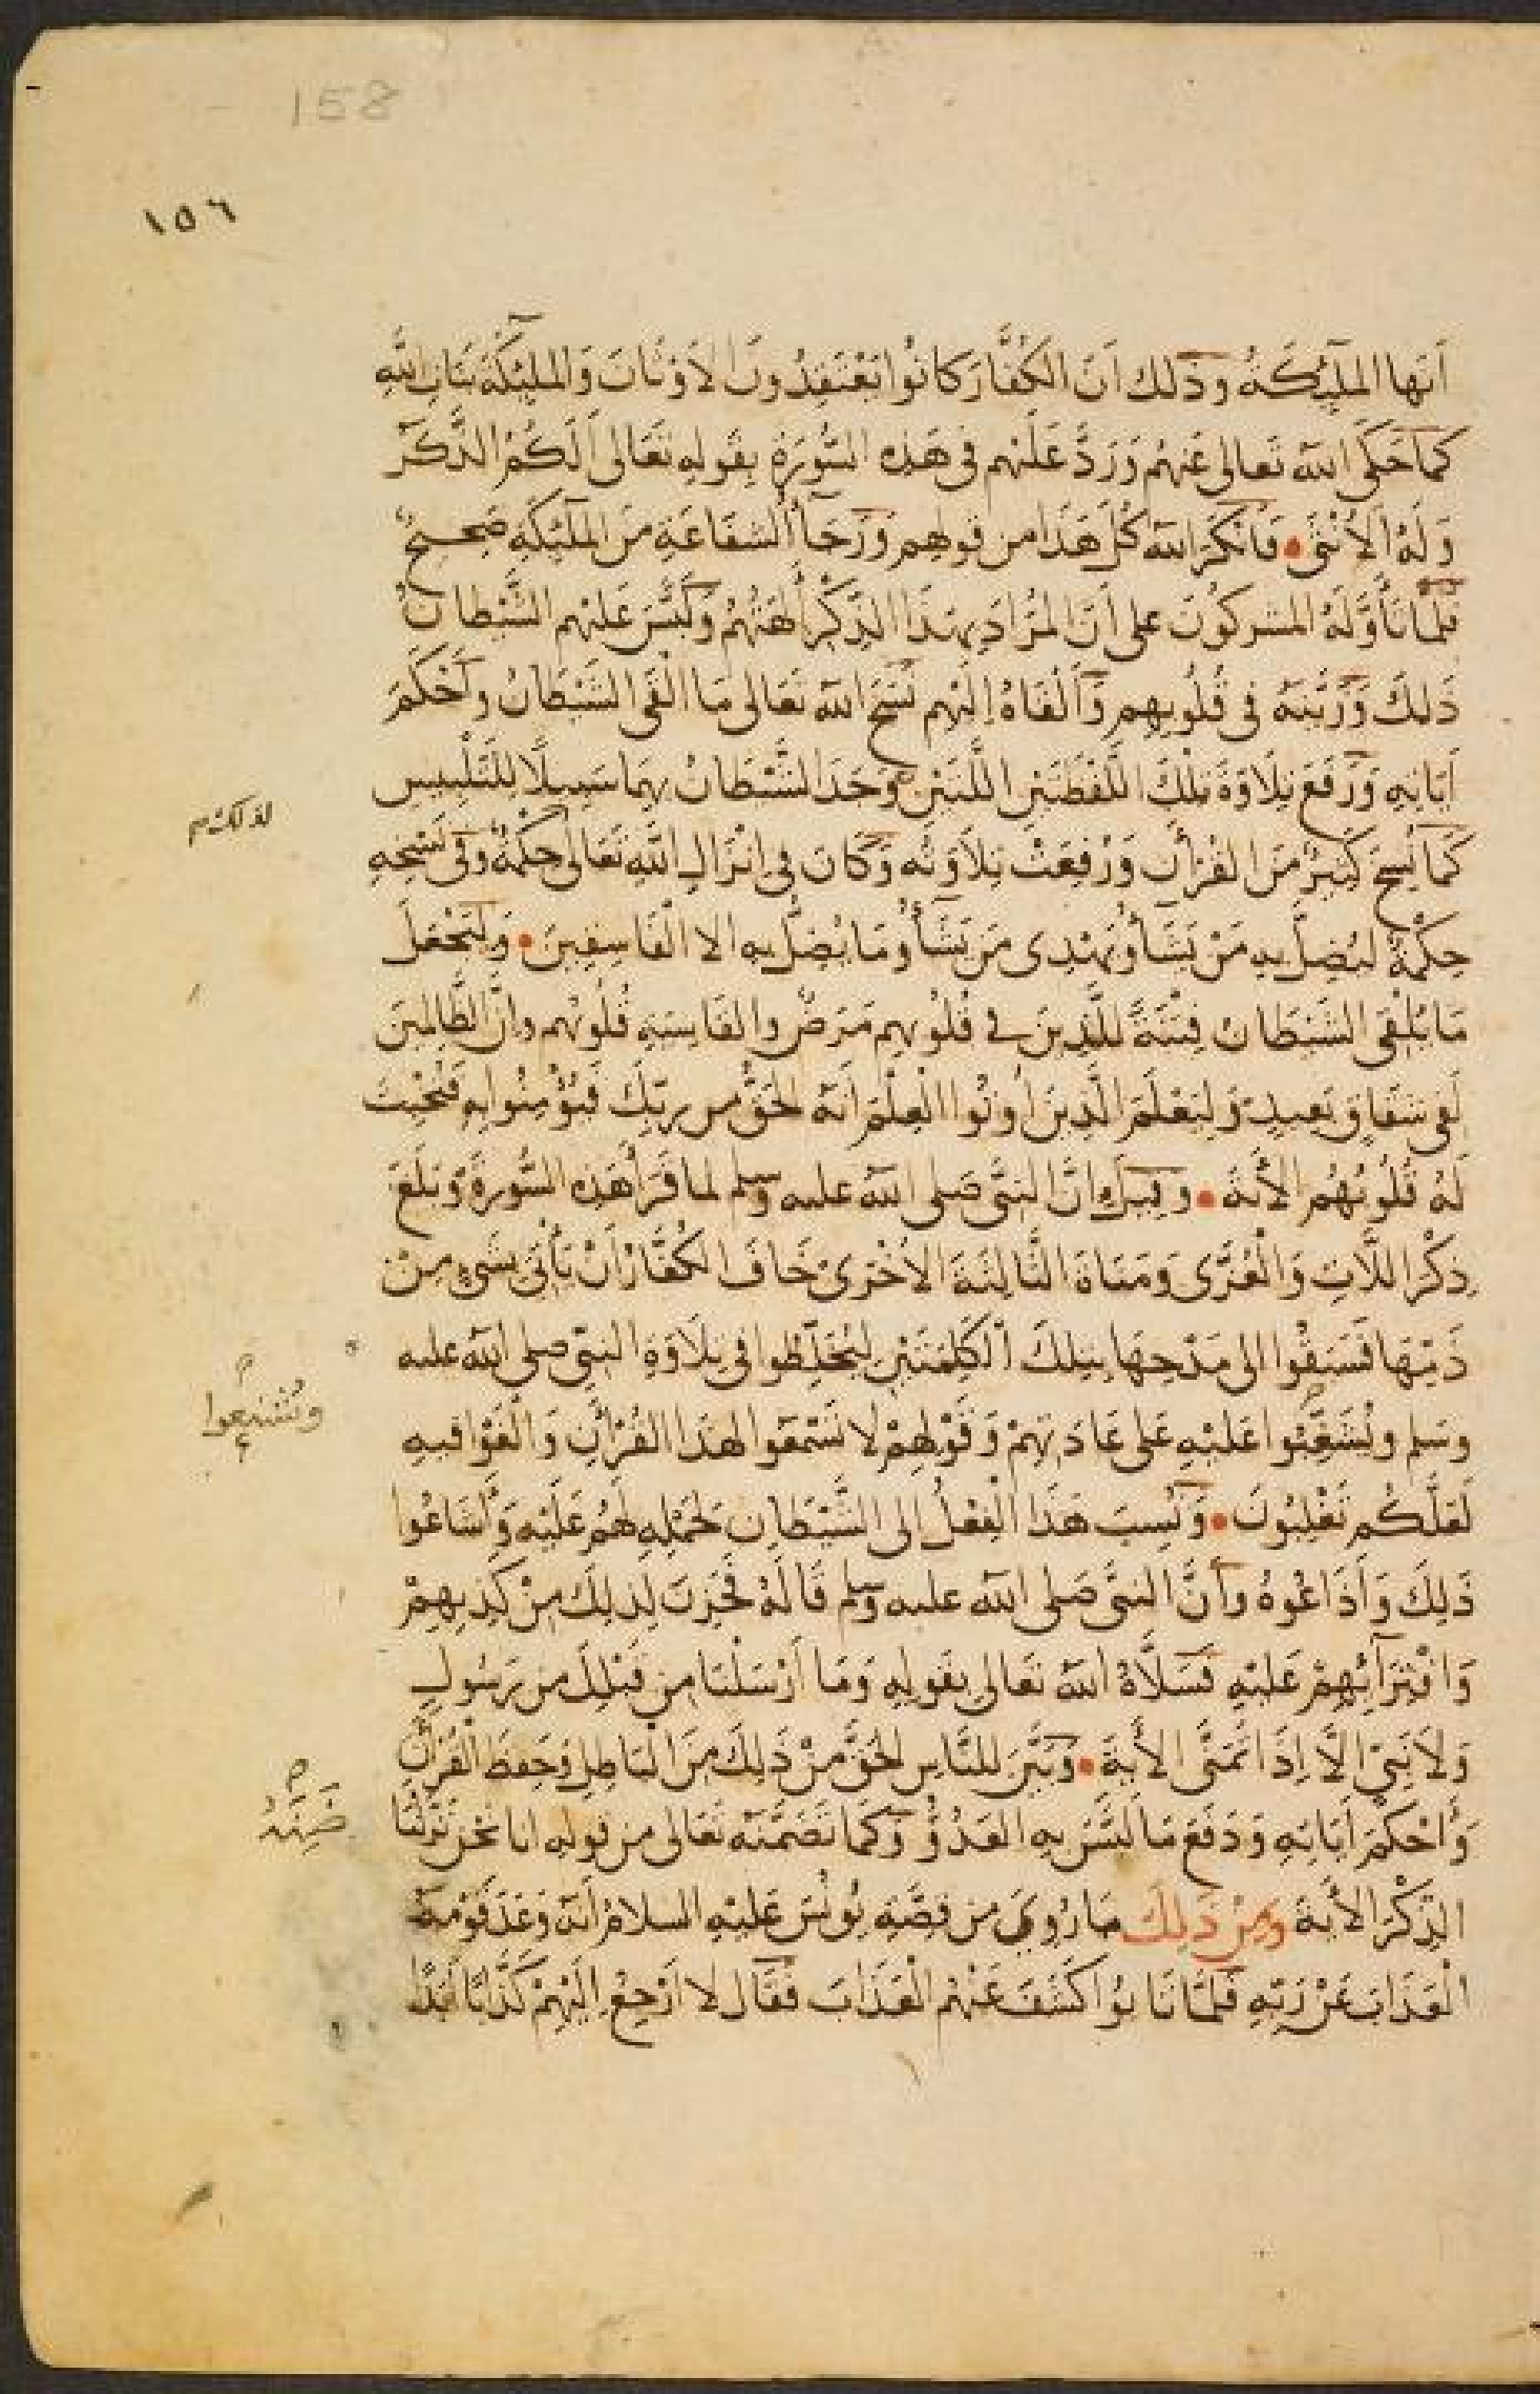 158
١٥٦
أَنها الملَٰئِكَةُ وذَلك اَنَ الكُفَّارَ كانوُا يَعْتَقِدُونَ الاَوْثَانَ وَالملَٰئِكَةَ بَنَاتِ اللَّهِ
كما حَكَى اللّه تَعالى عَنهُم وَرَدَّ عَلَيْهم فى هَذِه السُّورَةِ بِقَولِهِ تَعَالى أَلَكُمُ الذَّكَرُ
وَلَهُ الأُنْثَى • فَانكَرَ اللّه كُلَّ هَذَا من قولهِم وَرَجَآءُ الشفَاعَةِ مِنَ الملَٰئِكَةِ صَحِيحٌ
فَلَمّا تَأَوَّلَهُ المشركُونَ على اَنَّ المُرَادَ بِهَذَا الذِّكْرِ آلِهَتُهُمْ وَلَبَّسَ عَلَيْهِم الشَّيْطانُ
ذَلِكَ وَزَيَّنَهُ فى قُلُوبِهِم وَأَلْقَاهُ إِلَيْهِم نَسَخَ اللّه تَعَالى مَا اَلْقَى الشَيْطَانُ وَأَحْكَمَ
آيَاتِهِ وَرَفَعَ تِلَاوَةَ تِلْكَ اللَّفْظَتَيْنِ اللَّتَيْنِ وَجَدَ الشَّيْطَانُ بِهِمَا سَبِيلًا لِلتَّلْبِيس
لذلك م
كَمَا نُسِخَ كَثِيرٌ مِنَ القُرْآنِ وَرُفِعَتْ تِلاَوَتُه وَكَانَ فى اِنْزَالِ اللَّهِ تَعَالى حِكْمَةٌ وَفى نَسْخِهِ
حِكْمَةٌ ليُضِلَّ بِهِ مَنْ يَشَآءُ وَيَهْدِى مَن يَشَآءُ وَمَا يُضِلُّ بِهِ الا الْفَاسِقِينَ • وَلِيَجْعَلَ
مَا يُلْقِى الشَيْطَانُ فِتْنَةً لِلَّذِينَ في قُلُوبِهِم مَرَضٌ والقَاسِيَةِ قُلُوبُهُم وانَّ الظَّالِمِينَ
لَفى شِقَاقٍ بَعِيدٍ وَلِيَعْلَمَ الَّذِينَ أُوتُوا الْعِلْمَ اَنَّهُ الحَقُّ من ربّكَ فَيُؤْمِنُوا بِهِ فَتُخْبِتَ
لَهُ قُلُوبُهُم الأيَةَ • وقِيلَ اِنَّ النبىَّ صَلى اللّه عليه وسلم لما قَرَأَ هَذِهِ السُّورةَ وَبَلَغَ
ذِكْرَ اللَّاتِ وَالْعُزَّى وَمَنَاةَ الثَّالِثَةَ الاُخْرَى خَافَ الكُفَّارُ اَنْ يَأْتِىَ بِشَىءٍ مِنْ
ذَمِّهَا فَسَبَقُوا الى مَدْحِهَا بِتِلكَ الْكَلِمَتَيْنِ لِيُخَلِّطُوا فى تِلَاوَةِ النبىّ صلى اللّه عليه
وَيُشَنِّعوا
وسَلم وَيُشَغِّبُوا عَلَيْهِ عَلى عَادَتِهِمْ وَقَوْلِهِمْ لا تَسْمَعُوا لهَذَا القُرْآنِ وَالْغَوْا فِيهِ
لَعَلَّكُم تَغْلِبُونَ • وَنُسِبَ هَذَا الْفِعْلُ الى الشَّيْطَانِ لحَمْلِهِ لَهُمْ عَلَيْه وَأَشَاعُوا
ذَلِكَ وَأَذَاعُوهُ وَأَنَّ النبىَّ صَلى اللّه عليه وسلم قَالَهُ فَحَزِنَ لِذلِكَ مِنْ كَذِبِهِمْ
وَافْتِرَآئِهِمْ عَلَيْهِ فَسَلَّاهُ اللّه تَعَالى بِقَولِهِ وَمَا أَرْسَلْنَا مِن قَبْلِكَ مِن رَسُولٍ
وَلاَ نَبِىٍّ الَّا اِذَا تَمَنَّى الأيةَ • وَبَيَّنَ للنَّاسِ الحَقَّ مِنْ ذَلِكَ مِنَ الْبَاطِلِ وَحَفِظَ الْقُرْآنَ
وَأَحْكَمَ آيَاتِهِ وَدَفَعَ مَا لَبَّسَ بِهِ العَدُوُّ وَكَمَا تَضَمَّنَه تَعَالى من قولِهِ انا نَحْنُ نَزَّلْنَا
ضَمِنَهُ
الذِّكْرَ الأيَةَ وَمِنْ ذَلِكَ مَا رُوِىَ من قِصَّةِ يُونُسَ عَلَيْهِ السلامُ اَنَّهُ وَعَدَ قَوْمَهُ
الْعَذَابَ عَنْ رَبِّهِ فَلَمَّا تَابُوا كَشَفَ عَنْهُم الْعَذَابَ فَقَال لا اَرْجِعُ اِلَيْهِمْ كَذَّابًا أَبَدًا